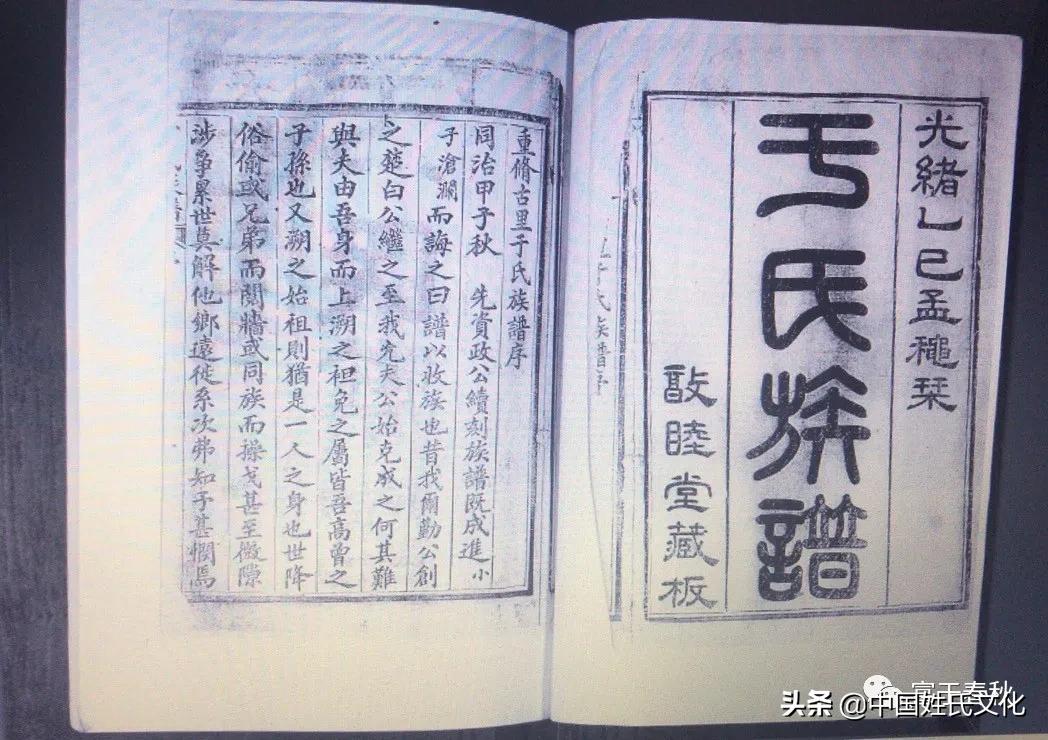 光緒乙巳孟穐栞
于氏族譜
敦睦堂藏板
重脩古里于氏族譜序
同治甲子秋 先資政公續刻族譜既成進小
子滄瀾而誨之曰譜以收族也昔我爾勤公創
之楚白公繼之至我先大公始克成之何其難
與夫由吾身而上溯之袒免之屬皆吾高曾之
子孫也又溯之始祖則猶是一人之身也世降
俗偷或兄弟而鬩牆或同族而操戈甚至微隙
涉爭累世莫解他鄉遠徙系次弗知予甚憫焉
富于春秋
头条 @中国姓氏文化